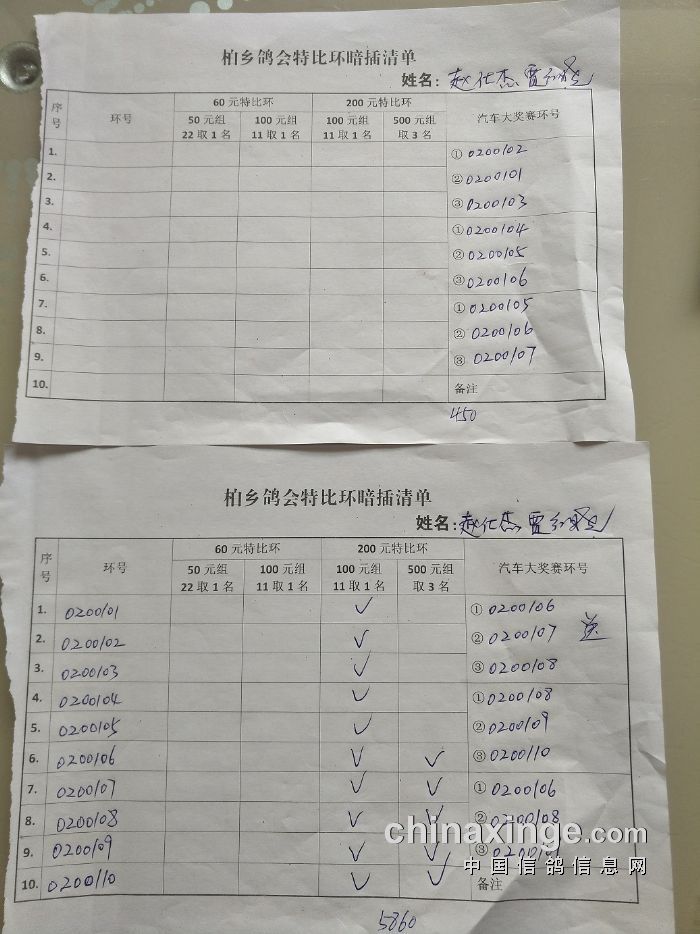 柏乡鸽会特比环暗插清单
姓名：赵仕杰
序号 环号 60元特比环 200元特比环 汽车大奖赛环号
50元组 22取1名 100元组 11取1名 100元组 11取1名 500元组 取3名
1. ①0200102
2. ②0200101
3. ③0200103
4. ①0200104
5. ②0200105
6. ③0200106
7. ①0200105
8. ②0200106
9. ③0200107
10. 备注
450
柏乡鸽会特比环暗插清单
姓名：赵仕杰
序号 环号 60元特比环 200元特比环 汽车大奖赛环号
50元组 22取1名 100元组 11取1名 100元组 11取1名 500元组 取3名
1. 0200101 ✓ ①0200106
2. 0200102 ✓ ②0200107 送
3. 0200103 ✓ ③0200108
4. 0200104 ✓ ①0200108
5. 0200105 ✓ ②0200109
6. 0200106 ✓ ✓ ③0200110
7. 0200107 ✓ ✓ ①0200106
8. 0200108 ✓ ✓ ②0200108
9. 0200109 ✓ ✓ ③
10. 0200110 ✓ ✓ 备注
5860
chinaxinge.com
中国信鸽信息网